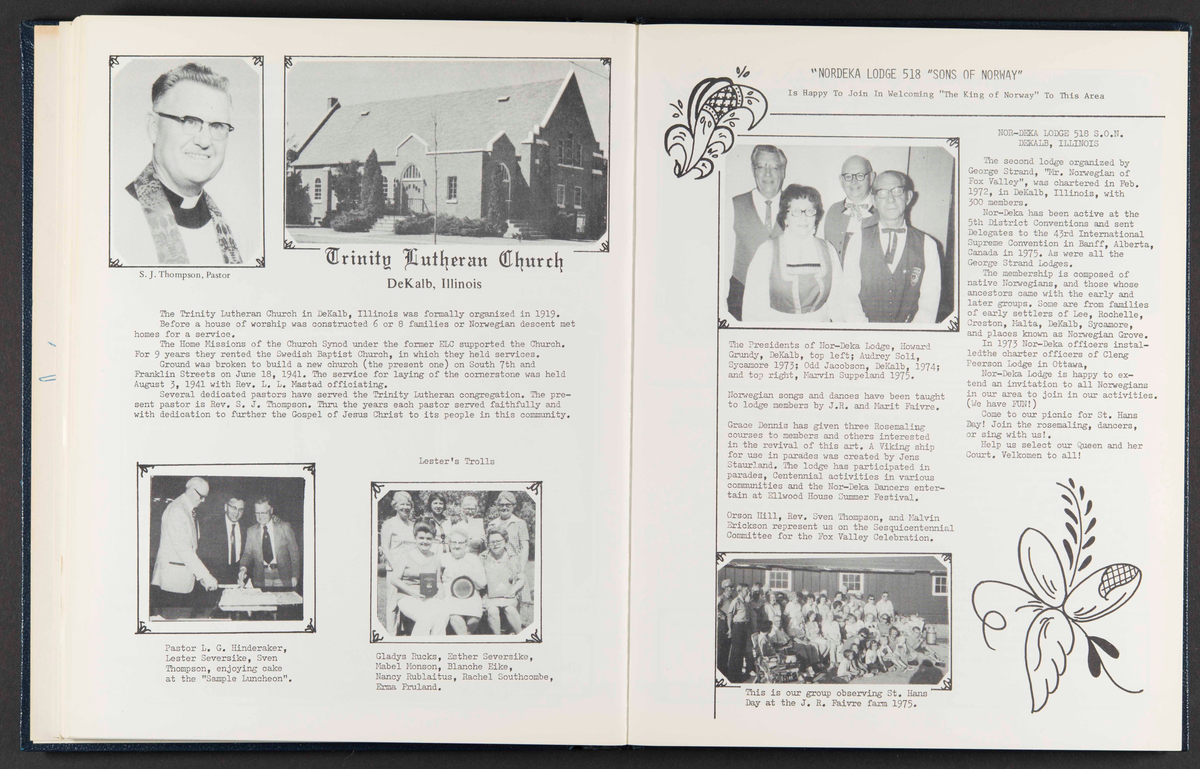 S. J. Thompson, Pastor
Trinity Lutheran Church
DeKalb, Illinois
The Trinity Lutheran Church in DeKalb, Illinois was formally organized in 1919.
Before a house of worship was constructed 6 or 8 families for Norwegian descent met
homes for a service.
The Home Missions of the Church Synod under the old ELC supported the Church.
For 9 years they rented the Swedish Baptist Church, in which they held services.
Ground was broken to build a new church (the present one) on South 7th and
Franklin Streets on June 18, 1941. The service for laying of the cornerstone was held
August 3, 1941 with Rev. L. L. Mastad officiating.
Several dedicated pastors have served the Trinity Lutheran congregation. The pre-
sent pastor is Rev. S. J. Thompson. Thru the years each pastor served faithfully and
with dedication to further the Gospel of Jesus Christ to its people in this community.
Lester's Trolls
Pastor L. G. Hinderaker,
Lester Seversike, Sven
Thompson, enjoying cake
at the "Sample Luncheon".
Gladys Rucks, Esther Seversike,
Mabel Monson, Blanche Eike,
Nancy Rublaitus, Rachel Southcombe,
Erma Fruland.
"NORDEKA LODGE 518 "SONS OF NORWAY"
Is Happy To Join In Welcoming "The King of Norway" To This Area
The Presidents of Nor-Deka Lodge, Howard
Grundy, DeKalb, top left; Audrey Soli,
Sycamore 1973; Odd Jacobson, DeKalb, 1974;
and top right, Marvin Suppeland 1975.
Norwegian songs and dances have been taught
to lodge members by J.R. and Marit Faivre.
Grace Dennis has given three Rosemaling
courses to members and others interested
in the revival of this art. A Viking ship
for use in parades was created by Jens
Staurland. The lodge has participated in
parades, Centennial activities in various
communities and the Nor-Deka Dancers enter-
tain at Ellwood House Summer Festival.
Orson Hill, Rev. Sven Thompson, and Malvin
Erickson represent us on the Sesquicentennial
Committee for the Fox Valley Celebration.
This is our group observing St. Hans
Day at the J. R. Faivre farm 1975.
NOR-DEKA LODGE 518 S.O.N.
DEKALB, ILLINOIS
The second lodge organized by
George Strand, "Mr. Norwegian of
Fox Valley", was chartered in Feb.
1972, in DeKalb, Illinois, with
300 members.
Nor-Deka has been active at the
5th District Conventions and sent
Delegates to the 43rd International
Supreme Convention in Banff, Alberta,
Canada in 1975. As were all the
George Strand Lodges.
The membership is composed of
native Norwegians, and those whose
ancestors came with the early and
later groups. Some are from families
of early settlers of Lee, Rochelle,
Creston, Malta, DeKalb, Sycamore,
and places known as Norwegian Grove.
In 1973 Nor-Deka officers instal-
ledthe charter officers of Cleng
Peerson Lodge in Ottawa,
Nor-Deka Lodge is happy to ex-
tend an invitation to all Norwegians
in our area to join in our activities.
(We have FUN!)
Come to our picnic for St. Hans
Day! Join the rosemaling, dancers,
or sing with us!.
Help us select our Queen and her
Court. Velkomen to all!